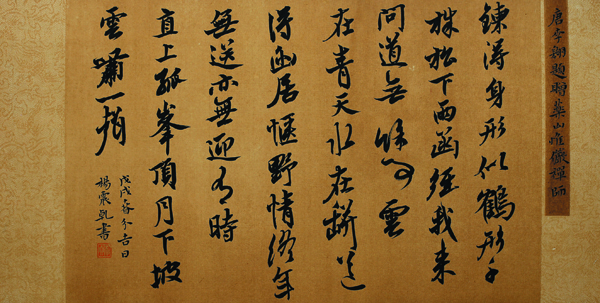 唐李翱題贈藥山惟儼禪師
鍊得身形似鶴形千
株松下兩函經我来
問道無餘雲
在青天水在缾選
得幽居愜野情終年
無送亦無迎有時
直上孤峯頂月下披
雲嘯一聲
戊戌春分吉日
楊震乾書